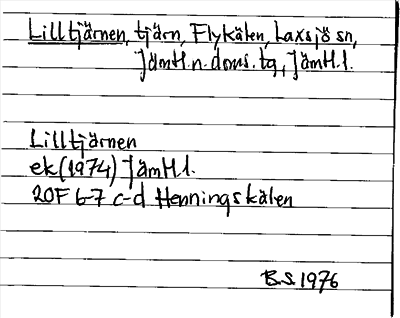 Lilltjärnen, tjärn, Flykälen, Laxsjö sn,
Jämtl.n.doms.tg, Jämtl.l.
Lilltjärnen
ek(1974) Jämtl.l.
20F 6-7 c-d Henningskälen
B.S. 1976